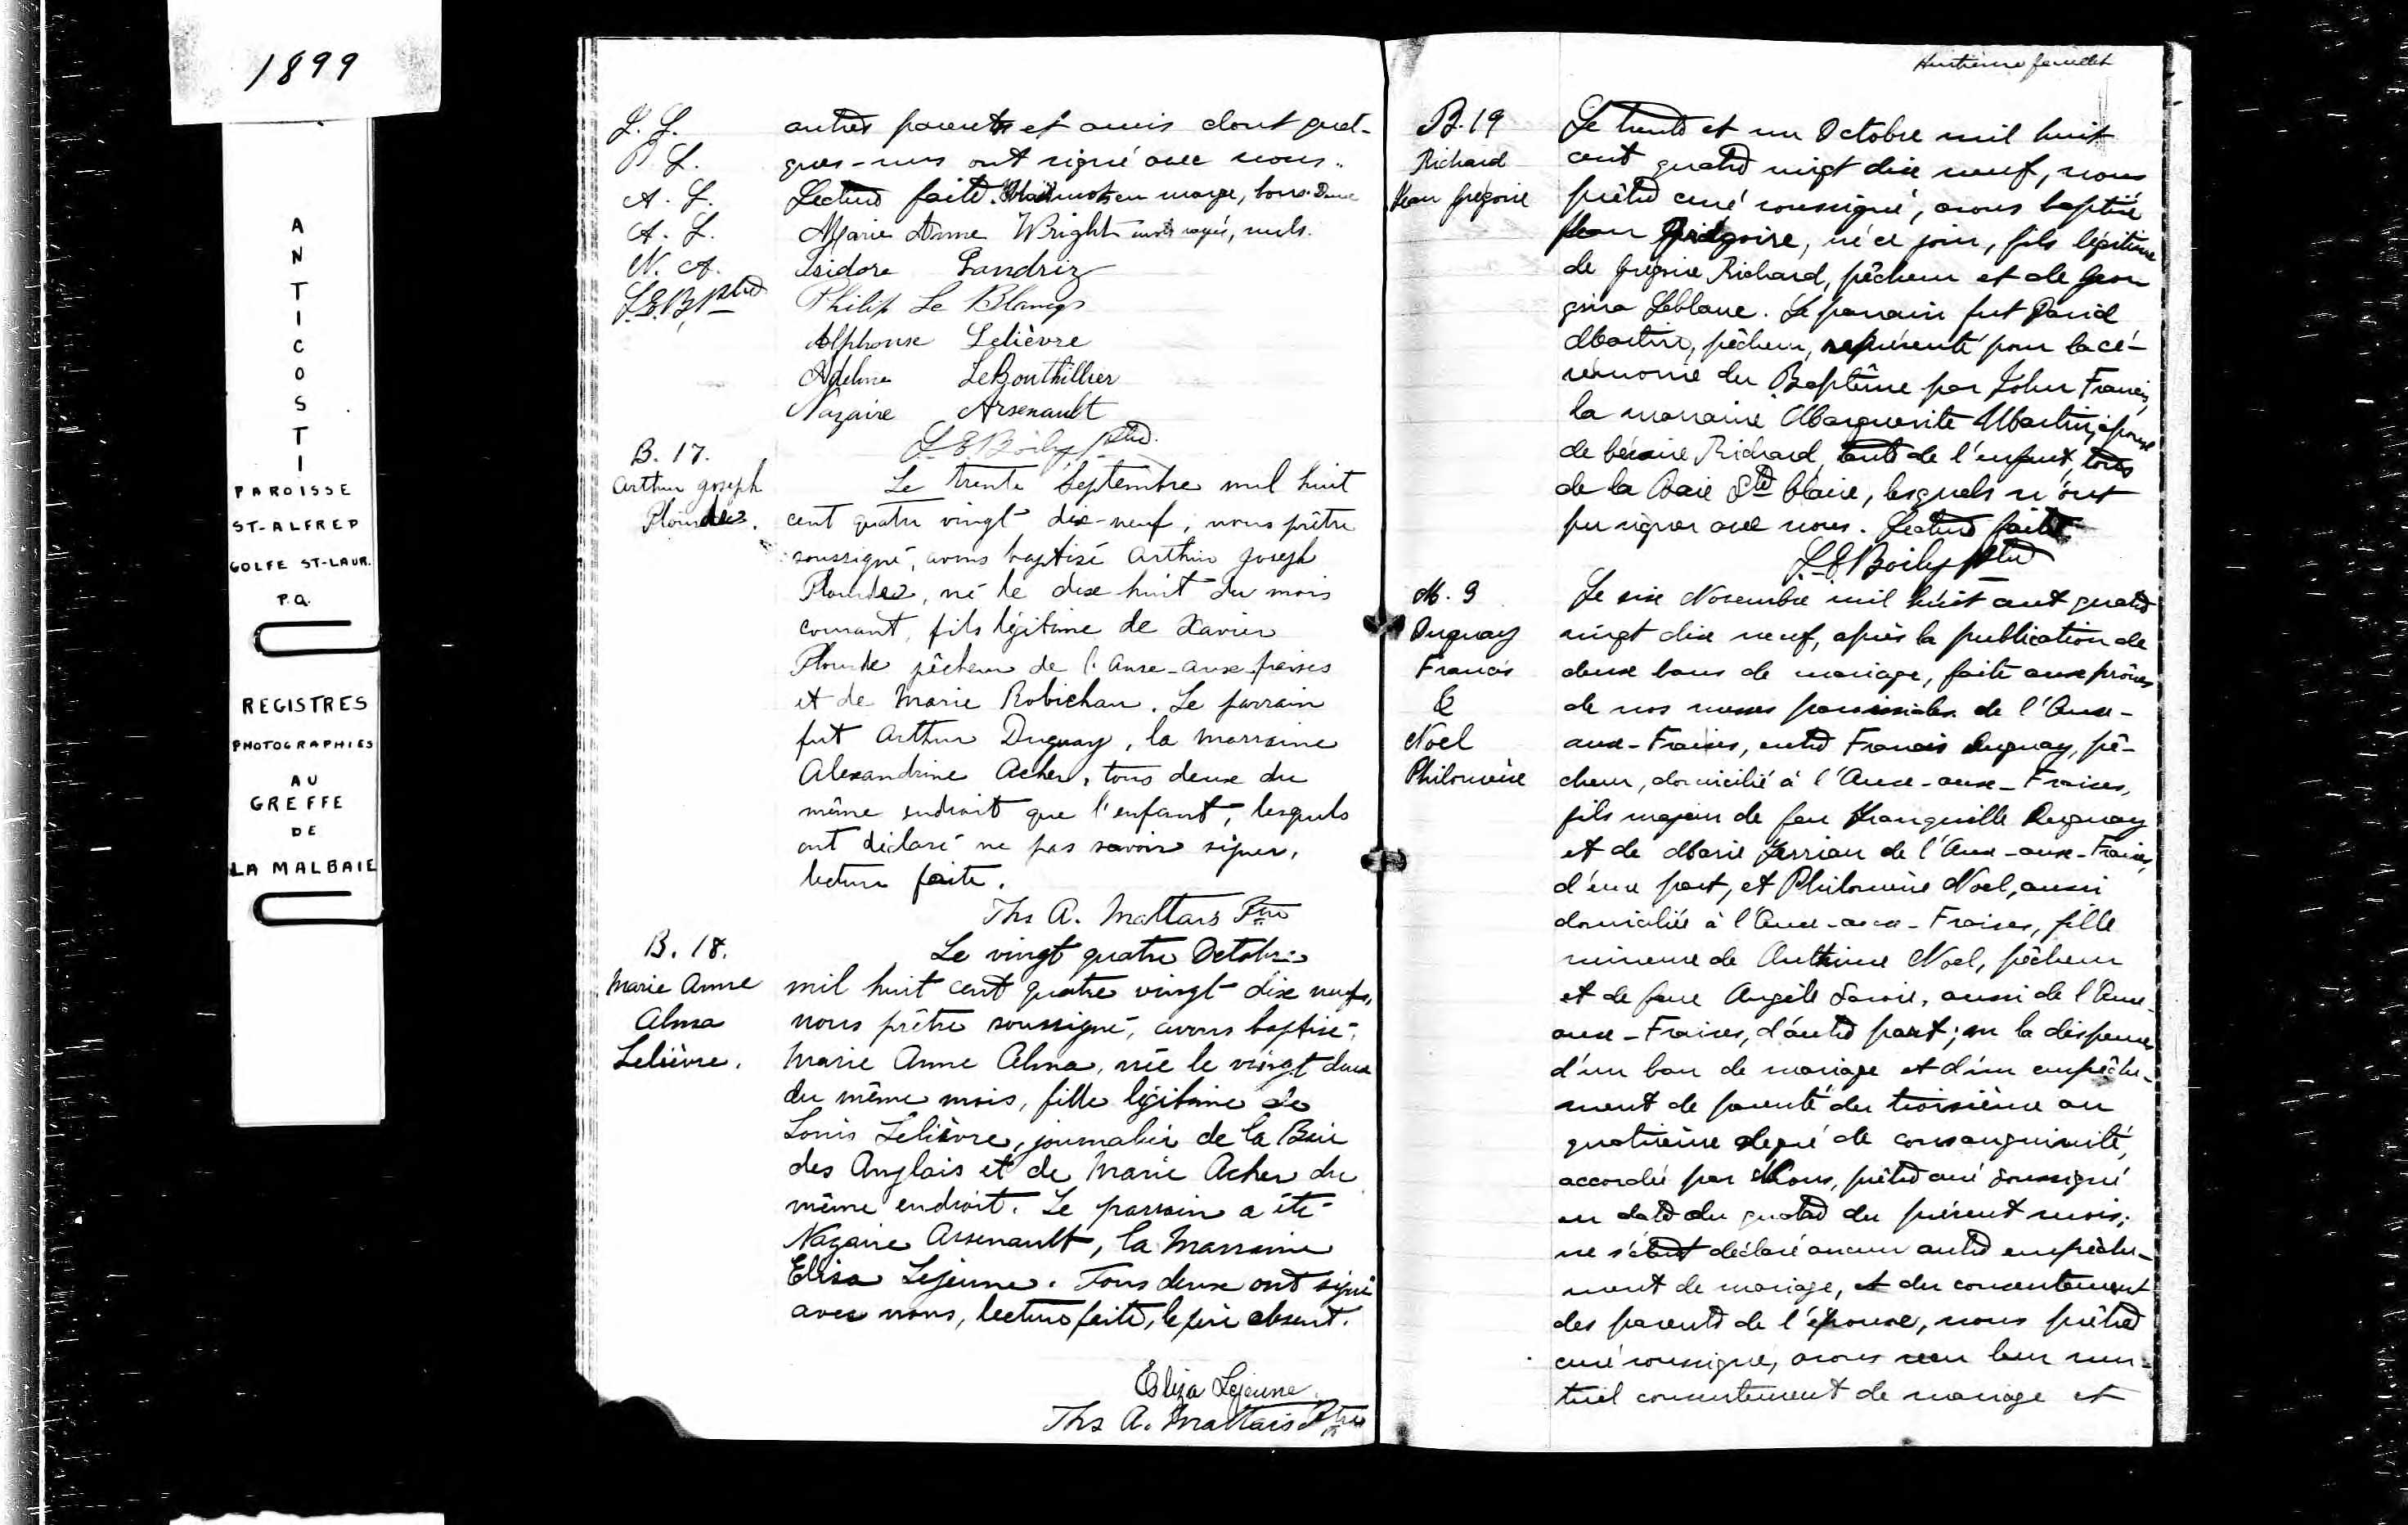 1899
ANTICOSTI
PAROISSE
ST-ALFRED
GOLFE ST-LAUR.
P.Q.
REGISTRES
PHOTOGRAPHIES
AU
GREFFE
DE
LA MALBAIE
autres parents et amis dont quel-
ques-uns ont signé avec nous.
Lecture faite. mots en marge, bons. Dame
Marie Anne Wright mots rayés, nuls.
Isidore Landriz
Philip Le Blancq
Alphonse Lelièvre
Adeline LeBouthillier
Nazaire Arsenault
L.E. Boily ptre
L. L.
P L.
A. L.
A. L.
N. A.
L.E.B. ptre
B. 17.
Arthur Joseph
Plourdes.
Le trente Septembre mil huit
cent quatre vingt dix-neuf, nous prêtre
soussigné, avons baptisé Arthur Joseph
Plourdes, né le dix huit du mois
courant, fils légitime de Xavier
Plourde pêcheur de l'Anse-aux-fraises
et de Marie Robichau. Le parrain
fut Arthur Duguay, la marraine
Alexandrine Acher, tous deux du
même endroit que l'enfant, lesquels
ont déclaré ne pas savoir signer,
lecture faite.
Ths A. Mattais Ptre
B. 18.
Marie Anne
Alma
Lelièvre.
Le vingt quatre Octobre
mil huit cent quatre vingt dix neuf,
nous prêtre soussigné, avons baptisé
Marie Anne Alma, née le vingt deux
du même mois, fille légitime de
Louis Lelièvre, journalier de la Baie
des Anglais et de Marie Acher du
même endroit. Le parrain a été
Nazaire Arsenault, la Marraine
Eliza Lejeune. Tous deux ont signé
avec nous, lecture faite, le père absent.
Eliza Lejeune
Ths A. Mattais Ptre
Huitième feuillet
B. 19
Richard
Jean Grégoire
Le trente et un Octobre mil huit
cent quatre vingt dix neuf, nous
prêtre curé soussigné, avons baptisé
Jean Grégoire, né ce jour, fils légitime
de Grégoire Richard, pêcheur et de Geor
gina Leblanc. Le parrain fut David
Martin, pêcheur, représenté pour la cé-
rémonie du Baptême par John Francis,
la marraine Marguerite Martin, épouse
de Richard, tante de l'enfant, tous
de la Baie Ste Claire, lesquels n'ont
pu signer avec nous. Lecture faite
L.E. Boily ptre
M. 3
Duguay
Francis
&
Noel
Philomène
Le six Novembre mil huit cent quatre
vingt dix neuf, après la publication de
deux bans de mariage, faite aux prônes
de nos messes paroissiales de l'Anse-
aux-Fraises, entre Francis Duguay, pê-
cheur, domicilié à l'Anse-aux-Fraises,
fils majeur de feu Tranquille Duguay
et de Marie Terriau de l'Anse-aux-Fraises,
d'une part, et Philomène Noel, aussi
domiciliée à l'Anse-aux-Fraises, fille
mineure de Anthime Noel, pêcheur
et de feue Angèle Savoie, aussi de l'Anse-
aux-Fraises, d'autre part; vu la dispense
d'un ban de mariage et d'un empêche-
ment de parenté du troisième au
quatrième degré de consanguinité,
accordée par Nous, prêtre curé soussigné
en date du quatre du présent mois;
ne s'étant déclaré aucun autre empêche-
ment de mariage, et du consentement
des parents de l'épouse, nous prêtre
curé soussigné, avons reçu leur mu-
tuel consentement de mariage et